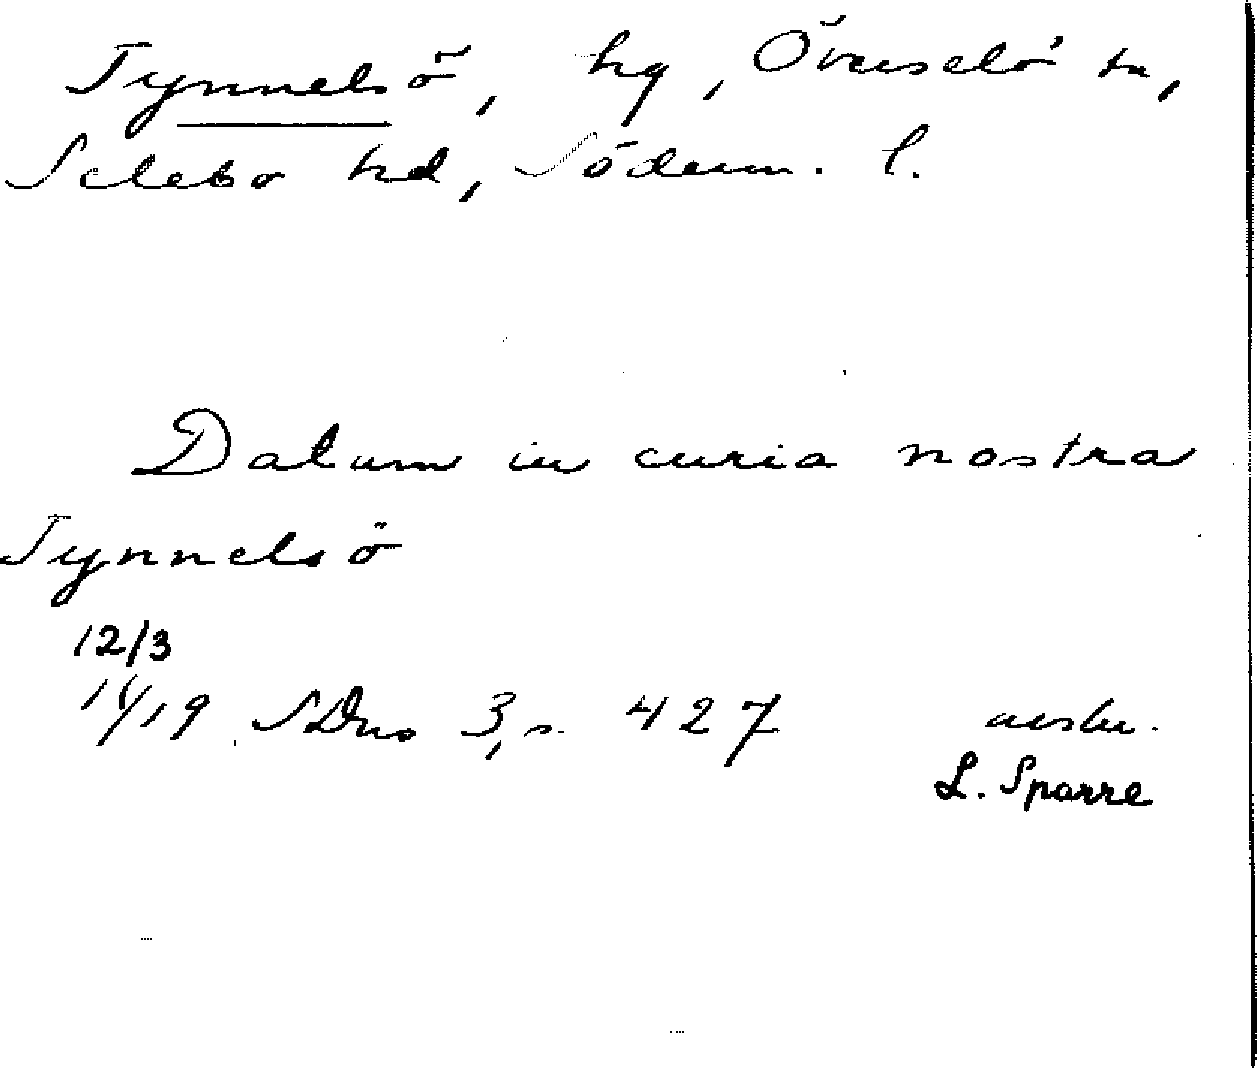 Tynnelsö, hg, Överselö sn,
Selebo hd, Söderm. l.
Datum in curia nostra
Tynnelsö
12/3
14/19 SDns 3, s. 427 avskr.
L. Sparre